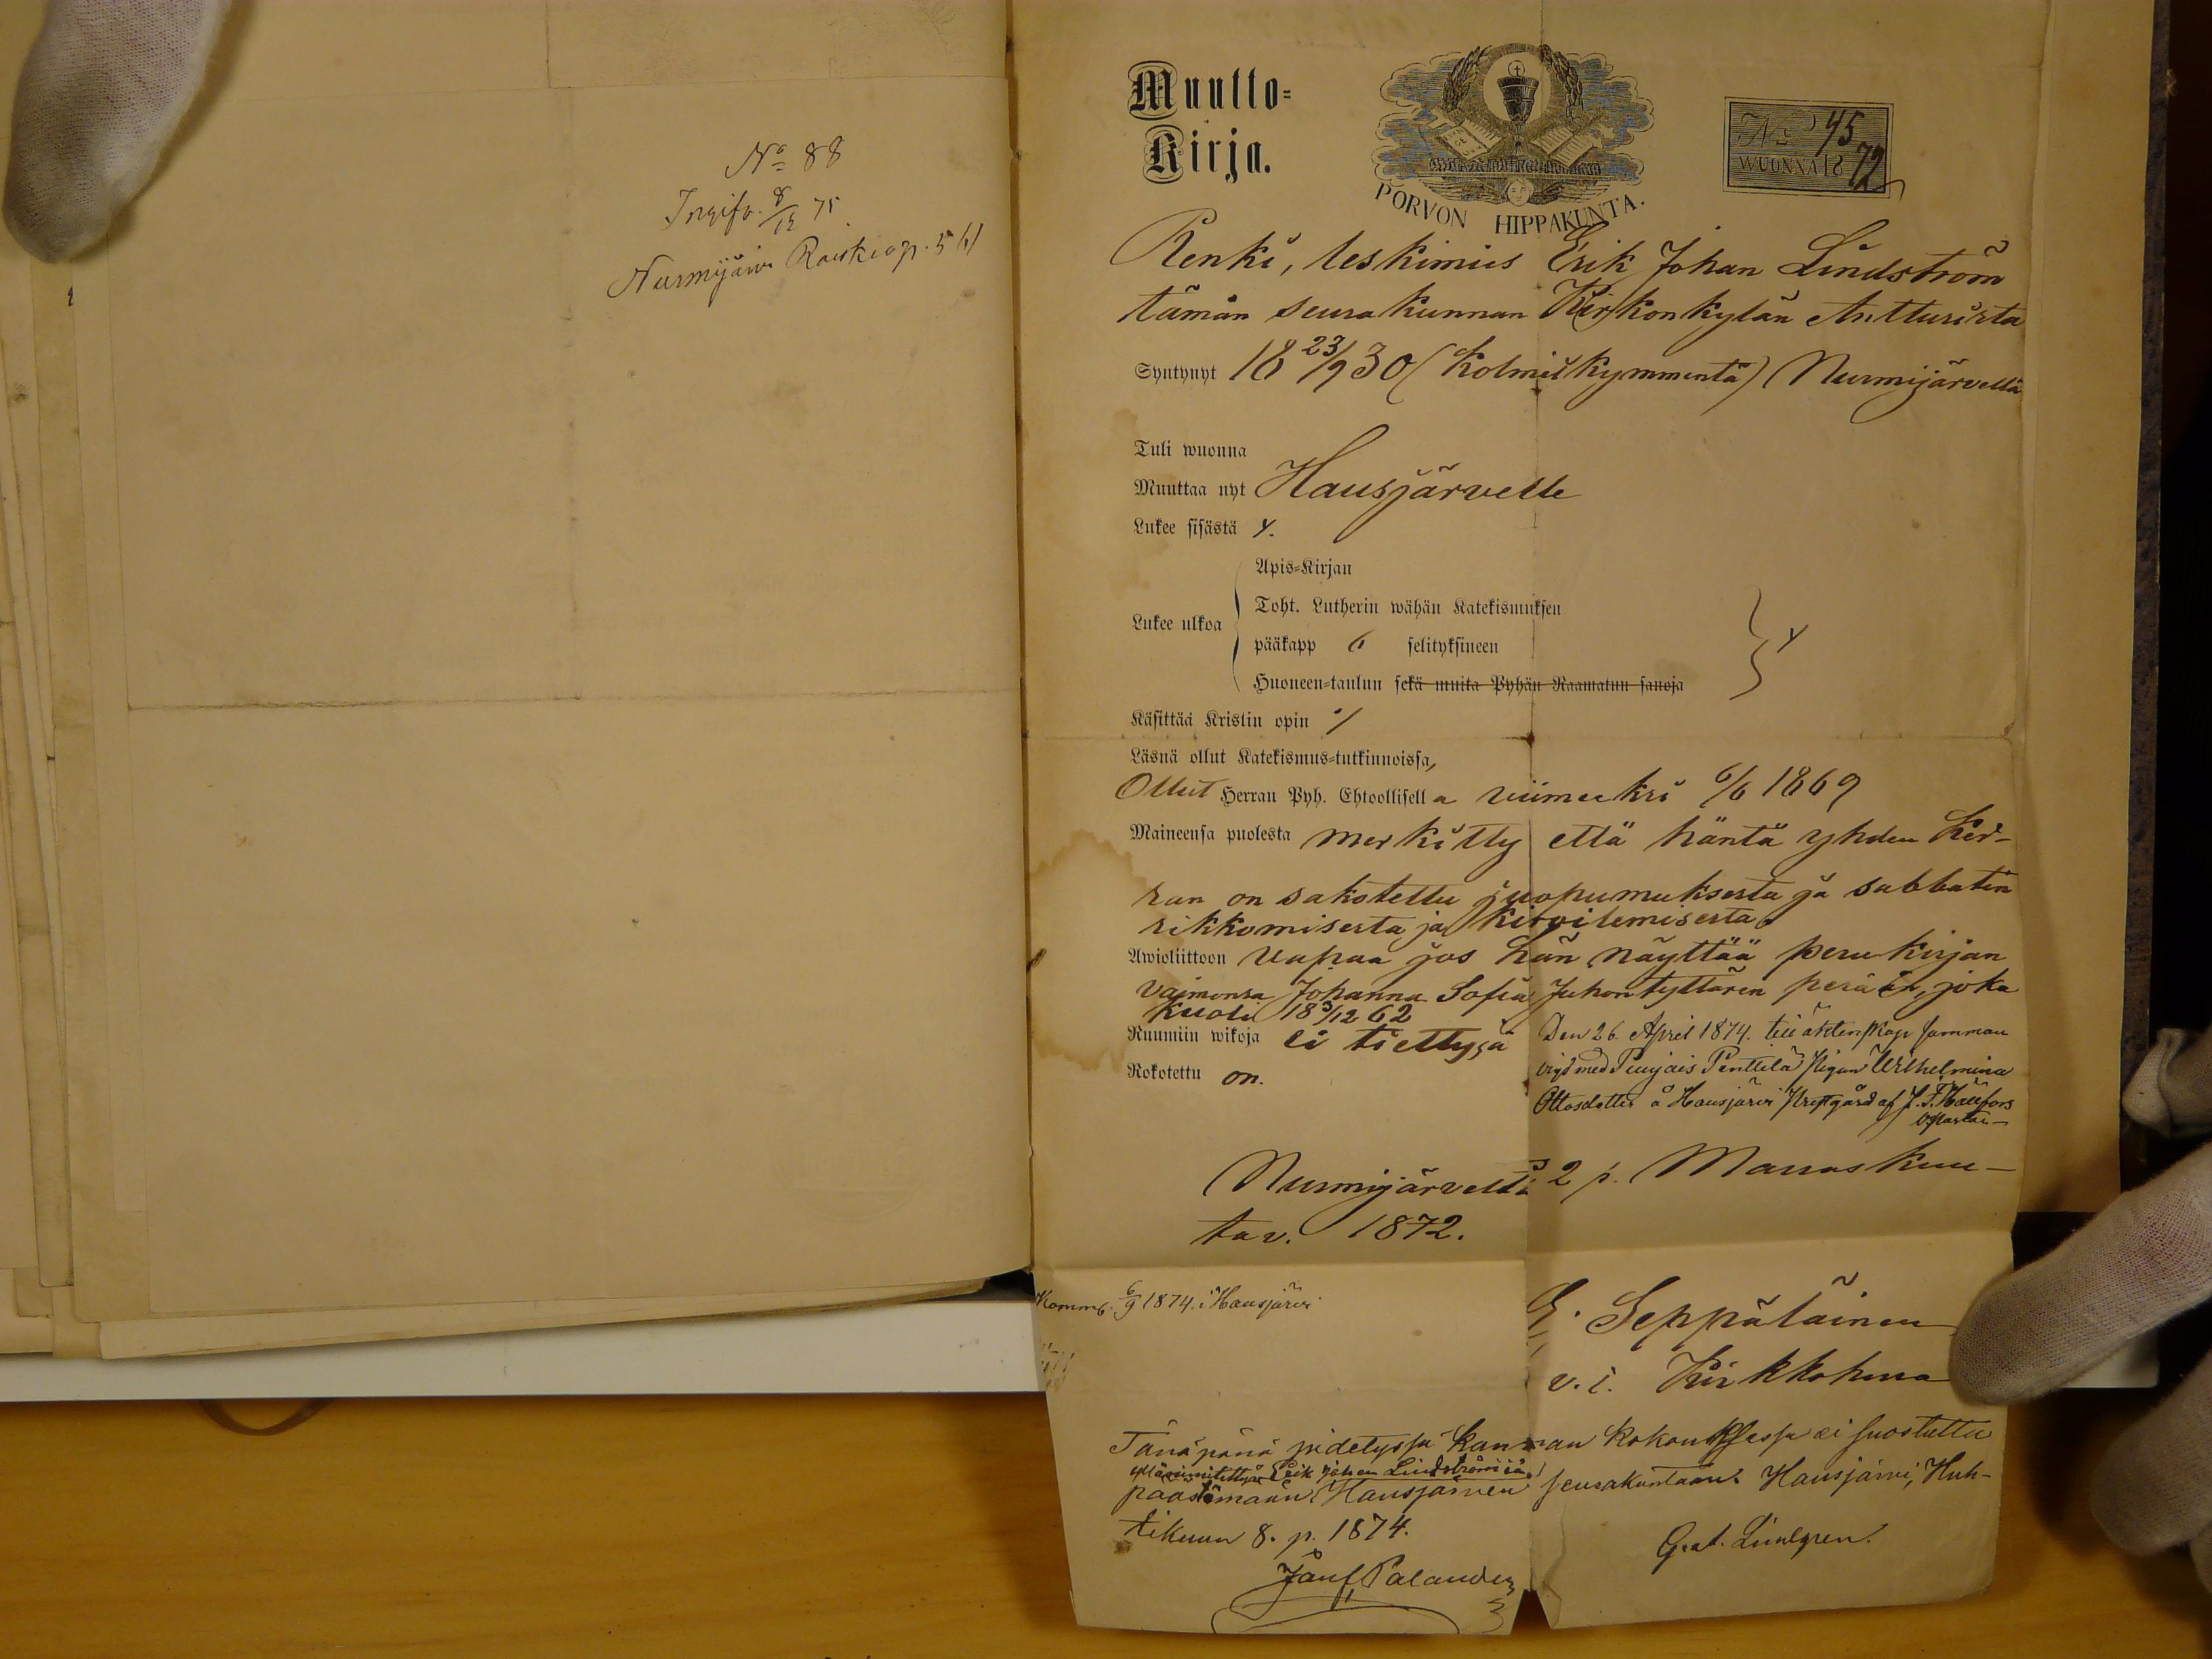 No 88
Ingifv. 8/12 75
Nurmijärvi Raiskio p. 561
Muutto=
Kirja.
PORVON HIPPAKUNTA.
No 45
WUONNA 1872
Renki, leskimies Erik Johan Lindström
tämän seurakunnan Kirkonkylän Antturista
Syntynyt 18 23/9 30 (kolmekymmentä) Nurmijärvellä
Tuli wuonna
Muuttaa nyt Hausjärvelle
Lukee sisästä
Apis=Kirjan
Toht. Lutherin wähän Katekismuksen
Lukee ulkoa
pääkapp 6 selityksineen
Huoneen=taulun sekä muita Pyhän Raamatun sanoja
Käsittää Kristin opin
Läsnä ollut Katekismus=tutkinnoissa,
Ollut Herran Pyh. Ehtoollisella viimeksi 6/6 1869
Maineensa puolesta merkitty että häntä yhden ker-
ran on sakotettu juopumuksesta ja sabbatin
rikkomisesta ja kiroilemisesta
Awioliittoon vapaa jos hän näyttää perukirjan
vaimonsa Johanna Sofia Juhontyttären perään, joka
kuoli 18 3/12 62
Ruumiin wikoja ei tiettyjä
Rokotettu on.
Den 26 April 1874 till äktenskap samman
vigd med Pentilä pigan Wilhelmina
Ottosdotter å Hausjärvi prestgård af J. F. Hällfors
Nurmijärvellä 2 p. Marraskuu-
ta v. 1872.
Kommb. 6/9 1874 i Hausjärvi
G. Seppäläinen
v. i. Kirkkoherra
Tänäpänä pidetyssä kunnan kokouksessa ei suostuttu
yllänimitettyä Erik Johan Lindströmiä
päästämään Hausjärven seurakuntaan. Hausjärvi, Huh-
tikuun 8. p. 1874.
Palander
Lindgren.